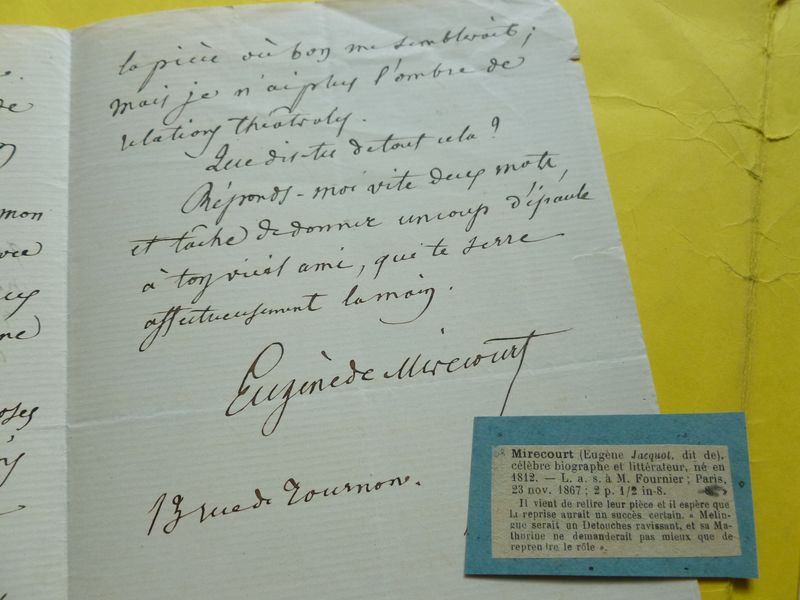 la pièce où bon me semblerait ;
mais je n'ai plus l'ombre de
relations théâtrales.
Que dis-tu de tout cela ?
Réponds-moi vite deux mots,
et tâche de donner un coup d'épaule
à ton vieil ami, qui te serre
affectueusement la main.
Eugène de Mirecourt
13 rue de Tournon.
de
mon
me
oses
Mirecourt (Eugène Jacquot, dit de),
célèbre biographe et littérateur, né en
1812. — L. a. s. à M. Fournier ; Paris,
23 nov. 1867 ; 2 p. 1/2 in-8.
Il vient de relire leur pièce et il espère que
la reprise aurait un succès certain. « Mélin-
gue serait un Detouches ravissant, et sa Ma-
thurine ne demanderait pas mieux que de
reprentre le rôle ».